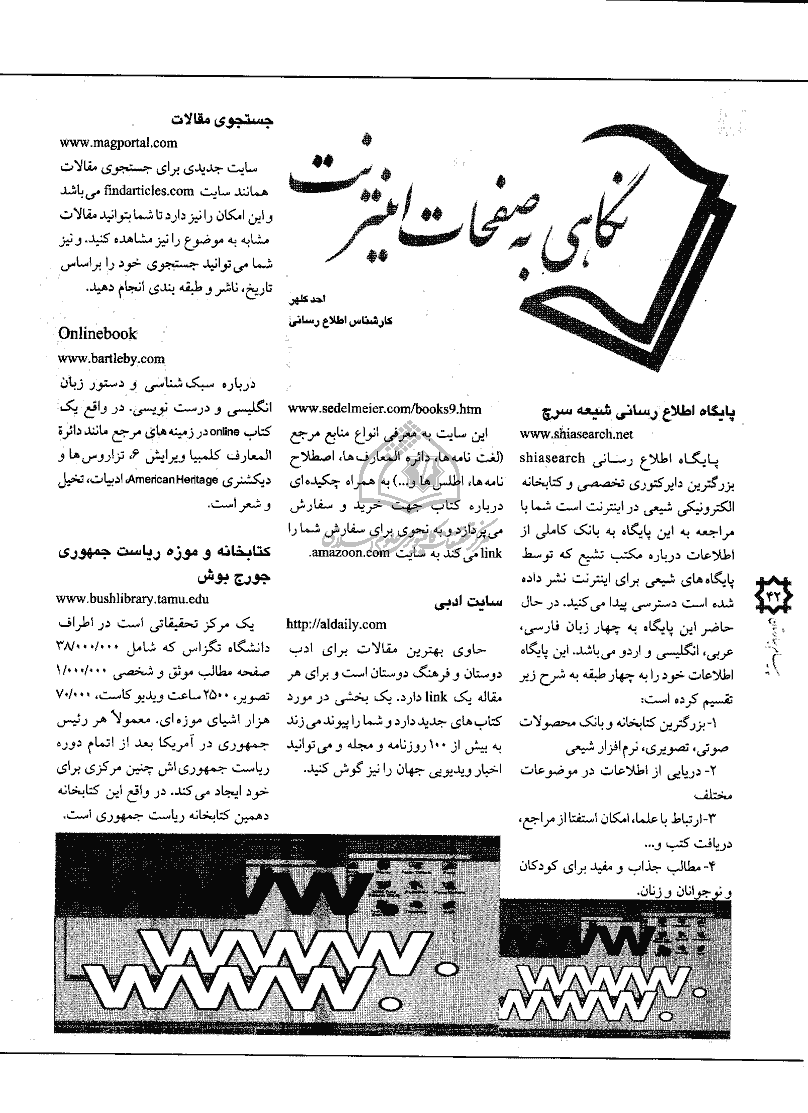 نگاهی به صفحات اینترنت
احد کلهر
کارشناس اطلاع رسانی
پایگاه اطلاع رسانی شیعه سرچ
www.shiasearch.net
پایگاه اطلاع رسانی shiasearch
بزرگترین دایرکتوری تخصصی و کتابخانه
الکترونیکی شیعی در اینترنت است شما با
مراجعه به این پایگاه به بانک کاملی از
اطلاعات درباره مکتب تشیع که توسط
پایگاه های شیعی برای اینترنت نشر داده
شده است دسترسی پیدا می کنید. در حال
حاضر این پایگاه به چهار زبان فارسی،
عربی، انگلیسی و اردو می باشد. این پایگاه
اطلاعات خود را به چهار طبقه به شرح زیر
تقسیم کرده است:
۱-بزرگترین کتابخانه و بانک محصولات
صوتی، تصویری، نرم افزار شیعی
۲- دریایی از اطلاعات در موضوعات
مختلف
۳-ارتباط با علما، امکان استفتا از مراجع،
دریافت کتب و...
۴- مطالب جذاب و مفید برای کودکان
و نوجوانان و زنان.
www.sedelmeier.com/books9.htm
این سایت به معرفی انواع منابع مرجع
(لغت نامه ها، دائره المعارف ها، اصطلاح
نامه ها، اطلس ها و...) به همراه چکیده ای
درباره کتاب جهت خرید و سفارش
می پردازد و به نحوی برای سفارش شما را
link می کند به سایت amazoon.com.
سایت ادبی
http://aldaily.com
حاوی بهترین مقالات برای ادب
دوستان و فرهنگ دوستان است و برای هر
مقاله یک link دارد. یک بخشی در مورد
کتاب های جدید دارد و شما را پیوند می زند
به بیش از ۱۰۰ روزنامه و مجله و می توانید
اخبار ویدیویی جهان را نیز گوش کنید.
جستجوی مقالات
www.magportal.com
سایت جدیدی برای جستجوی مقالات
همانند سایت findarticles.com می باشد
و این امکان را نیز دارد تا شما بتوانید مقالات
مشابه به موضوع را نیز مشاهده کنید. و نیز
شما می توانید جستجوی خود را براساس
تاریخ، ناشر و طبقه بندی انجام دهید.
Onlinebook
www.bartleby.com
درباره سبک شناسی و دستور زبان
انگلیسی و درست نویسی. در واقع یک
کتاب online در زمینه های مرجع مانند دائرة
المعارف کلمبیا ویرایش ۶، تزاروس ها و
دیکشنری American Heritage، ادبیات، تخیل
و شعر است.
کتابخانه و موزه ریاست جمهوری
جورج بوش
www.bushlibrary.tamu.edu
یک مرکز تحقیقاتی است در اطراف
دانشگاه تگزاس که شامل ۳۸/۰۰۰/۰۰۰
صفحه مطالب موثق و شخصی ۱/۰۰۰/۰۰۰
تصویر، ۲۵۰۰ ساعت ویدیو کاست، ۷۰/۰۰۰
هزار اشیای موزه ای. معمولاً هر رئیس
جمهوری در آمریکا بعد از اتمام دوره
ریاست جمهوری اش چنین مرکزی برای
خود ایجاد می کند. در واقع این کتابخانه
دهمین کتابخانه ریاست جمهوری است.
۴۲
WWWW.
WWWW.
WWWW.
WWWW.